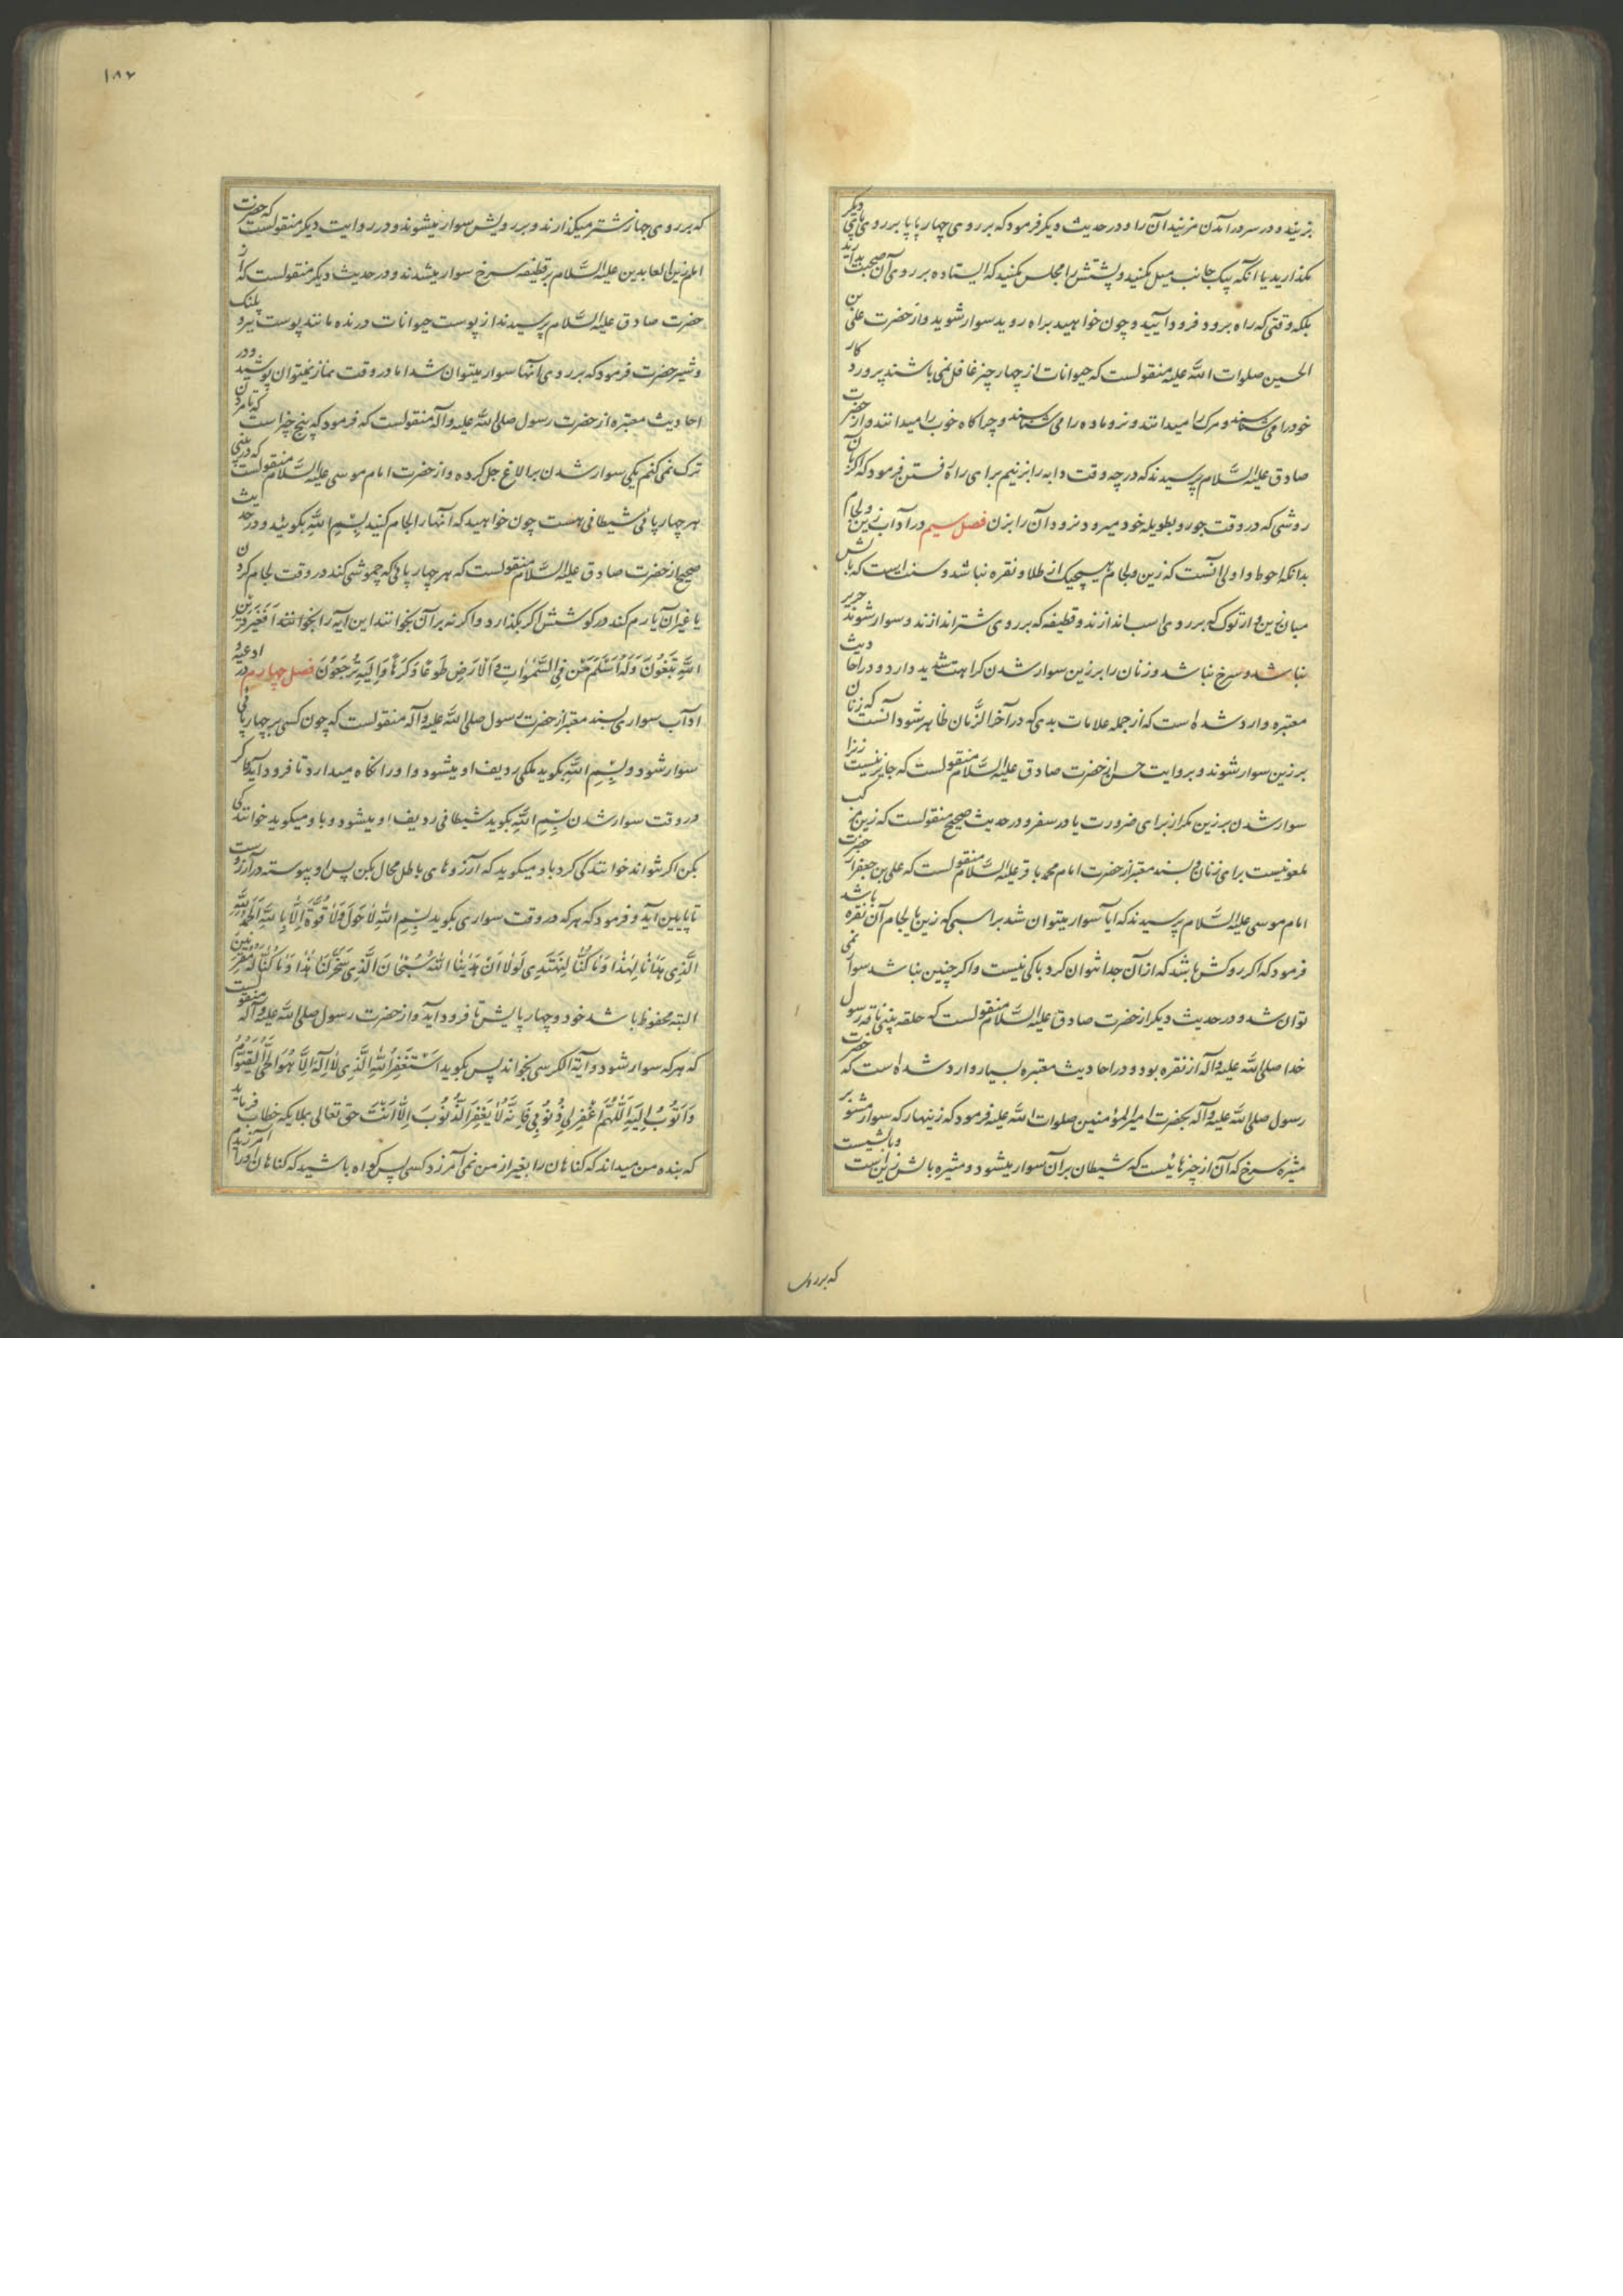 بزنید و در سر در آمدن مزنید آن را و در حدیث دیکر فرمود که بر روی چهار پا پا بر روی پای دیکر
مکذارید یا آنکه بیک جانب میل مکنید و پشتش را مجلس مکنید که ایستاده بر روی آن صحبت بدارید
بلکه وقتی که راه برود فرود آیید و چون خواهید براه روید سوار شوید و از حضرت علی بن
الحسین صلوات الله علیه منقولست که حیوانات از چهار چیز غافل نمی باشند پرورد کار
خود را می شناسند و مرک را میدانند و نر و ماده را می شناسند و چراکاه خوب را میدانند و از حضرت
صادق علیه السلام پرسیدند که در چه وقت دابه را بزنیم برای راه رفتن فرمود که اکر بآن
روشی که در وقت جو رو بطویله خود میرود نرود آن را بزن فصل سیم در آداب زین و لجام
بدانکه احوط و اولی آنست که زین و لجام هیچیک از طلا و نقره نباشد و سنت است که بالش
میان زین و ارتوک که بر روی اسب اندازند و قطیفه که بر روی شتر اندازند و سوار شوند حریر
نباشد و سرخ نباشد و زنان را بر زین سوار شدن کراهت شدید دارد و در احادیث
معتبره وارد شده است که از جمله علامات بدی که در آخر الزمان ظاهر شود آنست که زنان
بر زین سوار شوند و بروایت حسن از حضرت صادق علیه السلام منقولست که جایز نیست زنرا
سوار شدن بر زین مکر از برای ضرورت یا در سفر و در حدیث صحیح منقولست که زین مرکب
ملعونیست برای زنان و بسند معتبر از حضرت امام محمد باقر علیه السلام منقولست که علی بن جعفر از حضرت
امام موسی علیه السلام پرسیدند که آیا سوار میتوان شد بر اسبی که زین یا لجام آن نقره باشد
فرمود که اکر روکش باشد که از آن جدا نتوان کرد باکی نیست و اکر چنین نباشد سوار نمی
توان شد و در حدیث دیکر از حضرت صادق علیه السلام منقولست که حلقه بینی ناقه رسول
خدا صلی الله علیه و آله از نقره بود و در احادیث معتبره بسیار وارد شده است که حضرت
رسول صلی الله علیه و آله بحضرت امیر المؤمنین صلوات الله علیه فرمود که زینهار که سوار مشو بر
میثره سرخ که آن از چیزهائیست که شیطان بر آن سوار میشود و میثره بالش زین است و بالشیست
که بر روی
۱۸۷
که بر روی جهاز شتر میکذارند و بر رویش سوار میشوند و در روایت دیکر منقولست که حضرت
امام زین العابدین علیه السلام بر قطیفه سرخ سوار میشدند و در حدیث دیکر منقولست که از
حضرت صادق علیه السلام پرسیدند از پوست حیوانات درنده مانند پوست ببر و پلنک
و شیر حضرت فرمود که بر روی آنها سوار میتوان شد اما در وقت نماز نمیتوان پوشید و در
احادیث معتبره از حضرت رسول صلی الله علیه و آله منقولست که فرمود که پنج چیز است که تا مردن
ترک نمی کنم یکی سوار شدن بر الاغ جل کرده و از حضرت امام موسی علیه السلام منقولست که در بینی
هر چهار پائی شیطانی هست چون خواهید که آنها را لجام کنید بسم الله بکوئید و در حدیث
صحیح از حضرت صادق علیه السلام منقولست که هر چهار پائی که چموشی کند در وقت لجام کردن
یا غیر آن یا رم کند در کوشش اکر بکذارد و اکر نه بر آن بخوانند این آیه را بخوانند أفغیر دین
الله تبغون وله أسلم من فی السموات و الارض طوعا و کرها و الیه ترجعون فصل چهارم در ادعیه
ادآب سواری بسند معتبر از حضرت رسول صلی الله علیه و آله منقولست که چون کسی بر چهار پائی
سوار شود و بسم الله بکوید ملکی ردیف او میشود و او را نکاه میدارد تا فرود آید و اکر
در وقت سوار شدن بسم الله نکوید شیطانی ردیف او میشود و باو میکوید خوانندکی
بکن اکر نتواند خوانندکی کرد باو میکوید که آرزوهای باطل محال بکن پس او پیوسته در آرزوست
تا پایین آید و فرمود که هر که در وقت سواری بکوید بسم الله لا حول و لا قوة الا بالله الحمد لله
الذی هدانا لهذا و ما کنا لنهتدی لولا ان هدینا الله سبحان الذی سخر لنا هذا و ما کنا له مقرنین
البته محفوظ باشد خود و چهار پایش تا فرود آید و از حضرت رسول صلی الله علیه و آله منقولست
که هر که سوار شود و آیة الکرسی بخواند پس بکوید استغفر الله الذی لا اله الا هو الحی القیوم
و اتوب الیه اللهم اغفر لی ذنوبی فانه لا یغفر الذنوب الا انت حق تعالی بملایکه خطاب فرماید
که بنده من میداند که کناهان را بغیر از من نمی آمرزد کسی پس کواه باشید که کناهان او را آمرزیدم